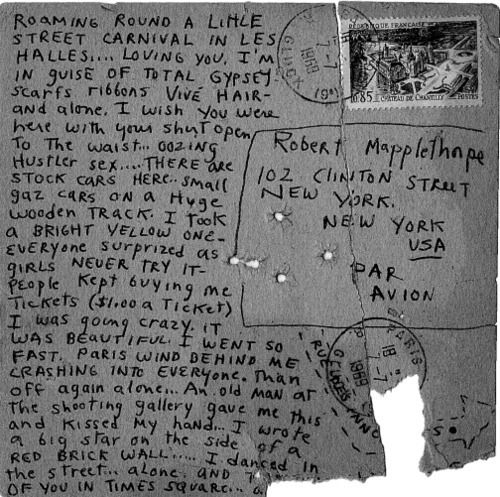 ROAMING ROUND A LITTLE
STREET CARNIVAL IN LES
HALLES.... LOVING YOU. I'M
IN GUISE OF TOTAL GYPSEY
SCARFS RIBBONS VIVE HAIR-
AND alone. I WISH YOU WERE
here WITH YOUR SHIRT OPEN
TO THE WAIST... OOZING
HUSTLER SEX.... THERE ARE
STOCK CARS HERE.. SMALL
gaz CARS ON A HUGE
WOODEN TRACK. I TOOK
A BRIGHT YELLOW ONE-
EVERYONE SURPRIZED AS
GIRLS NEVER TRY IT-
PEOPLE KEPT BUYING ME
TICKETS ($1.00 A TICKET)
I WAS GOING CRAZY. IT
WAS BEAUTIFUL. I WENT SO
FAST. PARIS WIND BEHIND ME
CRASHING INTO EVERYONE. THAN
OFF AGAIN ALONE... AN OLD MAN AT
THE SHOOTING GALLERY GAVE ME THIS
AND KISSED MY HAND... I WROTE
A BIG STAR ON THE SIDE OF A
RED BRICK WALL..... I DANCED IN
THE STREET... ALONE. AND
OF YOU IN TIMES SQUARE...
REPUBLIQUE FRANÇAISE
0,85 CHATEAU DE CHANTILLY POSTES
1969
Robert Mapplethorpe
102 CLINTON STREET
NEW YORK.
NEW YORK
USA
PAR
AVION
PARIS
18
1969